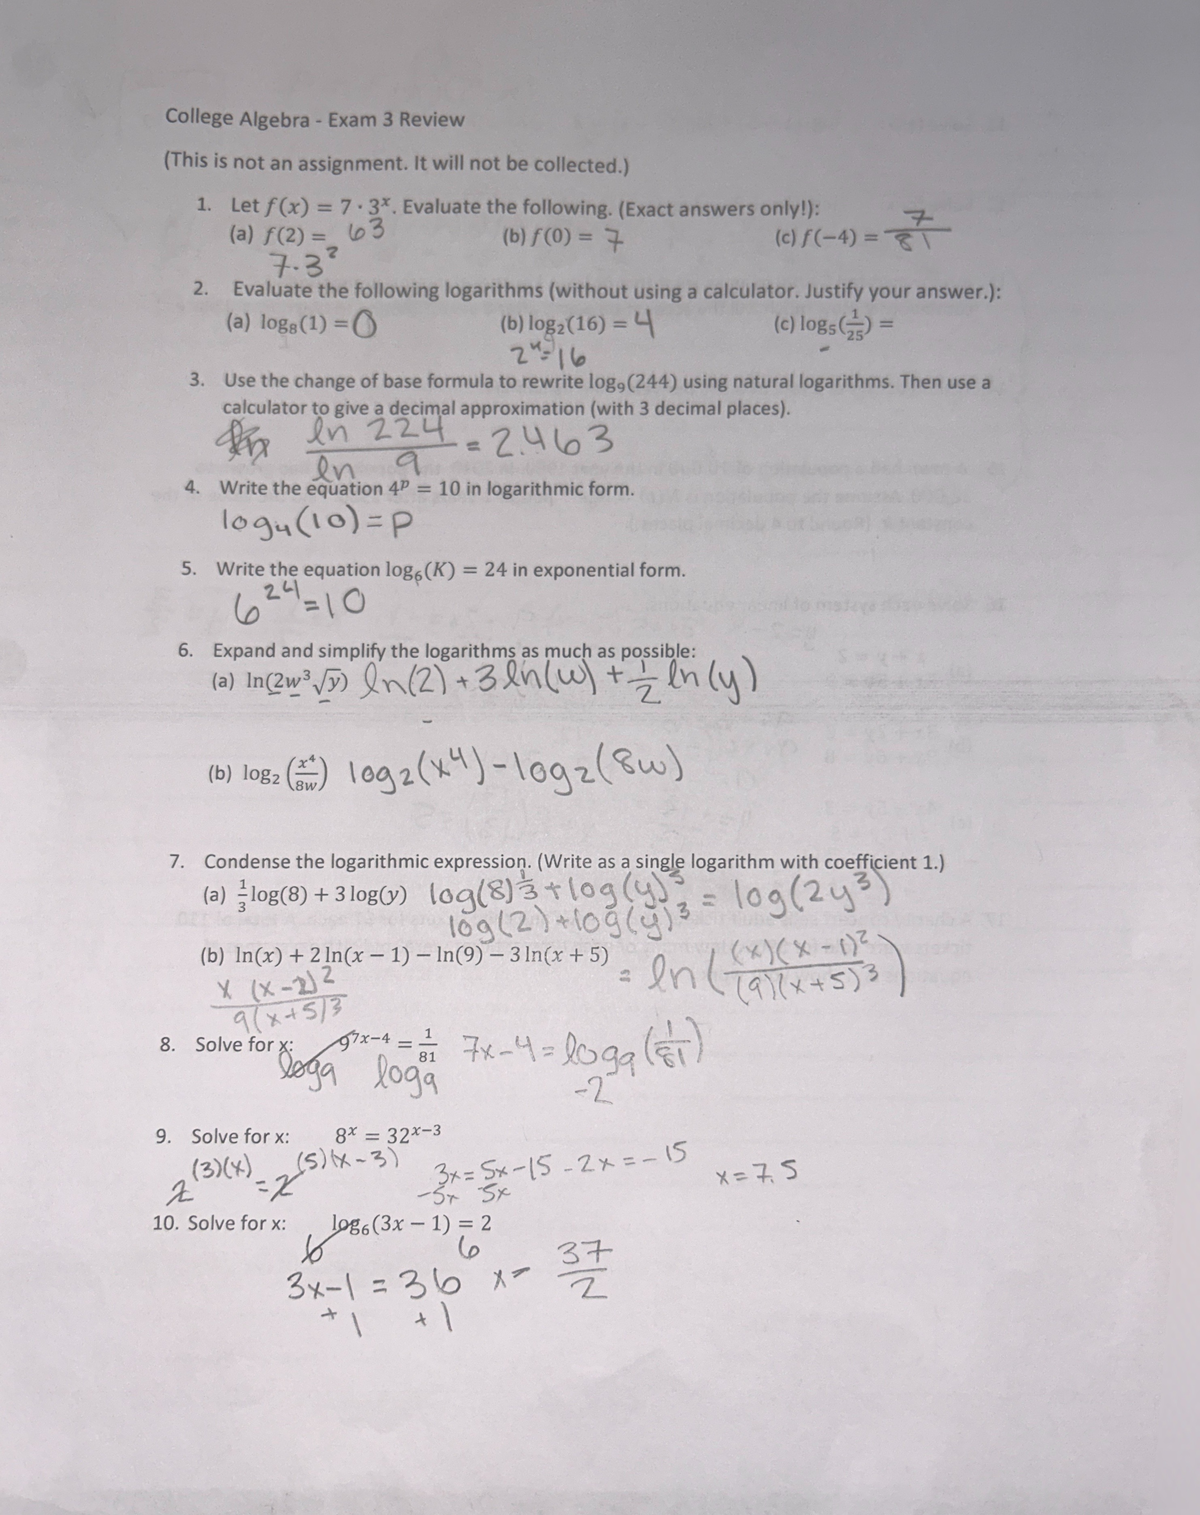 College Algebra - Exam 3 Review
(This is not an assignment. It will not be collected.)
1. Let f(x) = 7 · 3ˣ. Evaluate the following. (Exact answers only!):
(a) f(2) = 63 (b) f(0) = 7 (c) f(−4) = 7/81
7·3²
2. Evaluate the following logarithms (without using a calculator. Justify your answer.):
(a) log₈(1) = 0 (b) log₂(16) = 4 (c) log₅(1/25) =
2⁴=16
3. Use the change of base formula to rewrite log₉(244) using natural logarithms. Then use a
calculator to give a decimal approximation (with 3 decimal places).
ln 224 / ln 9 = 2.463
4. Write the equation 4ᵖ = 10 in logarithmic form.
log₄(10)=p
5. Write the equation log₆(K) = 24 in exponential form.
6²⁴=10
6. Expand and simplify the logarithms as much as possible:
(a) ln(2w³√y) ln(2)+3ln(w)+1/2 ln(y)
(b) log₂(x⁴/8w) log₂(x⁴)-log₂(8w)
7. Condense the logarithmic expression. (Write as a single logarithm with coefficient 1.)
(a) 1/3 log(8) + 3 log(y) log(8)^1/3 + log(y)³ = log(2y³)
log(2)+log(y)³
(b) ln(x) + 2 ln(x − 1) − ln(9) − 3 ln(x + 5) = ln((x)(x-1)²/(9)(x+5)³)
x (x-1)² / 9(x+5)³
8. Solve for x: 9⁷ˣ⁻⁴ = 1/81 7x-4=log₉(1/81)
log₉ log₉ -2
9. Solve for x: 8ˣ = 32ˣ⁻³
2^(3)(x) = 2^(5)(x-3) 3x=5x-15 -2x=-15 x=7.5
-5x 5x
10. Solve for x: log₆(3x − 1) = 2
6 6
3x-1=36 x= 37/2
+1 +1